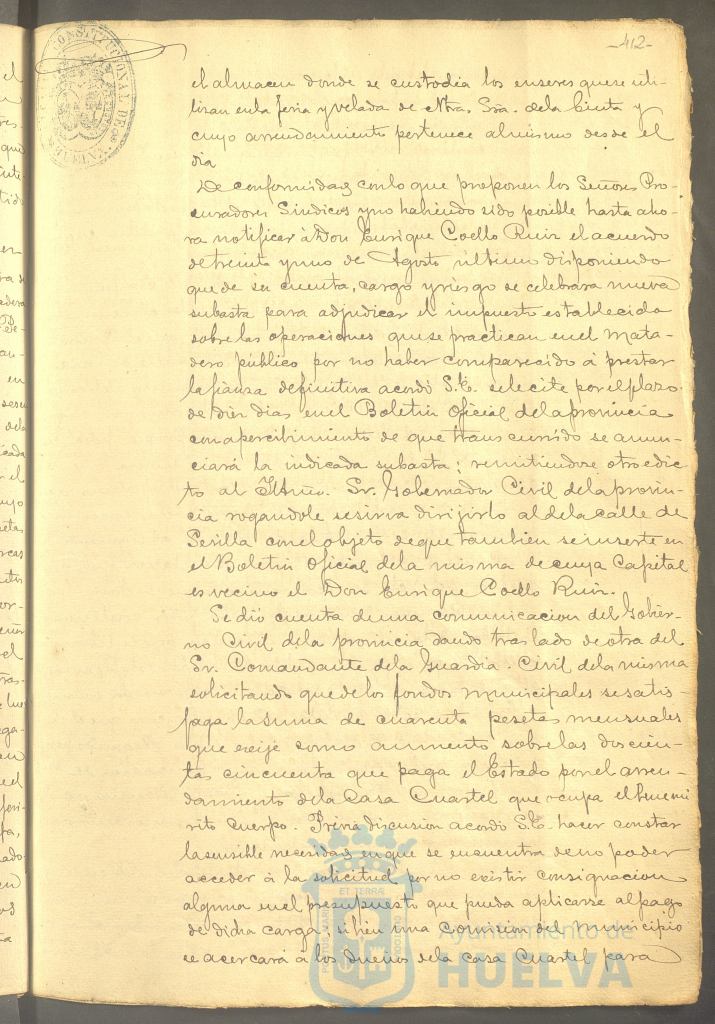 -412-
el almacen donde se custodia los enseres que se uti-
lizan en la feria y velada de Ntra. Sra. de la Cinta y
cuyo arrendamiento pertenece al mismo desde el
dia
De conformidad con lo que proponen los Señores Pro-
curadores Sindicos y no habiendo sido posible hasta aho-
ra notificar á Don Enrique Coello Ruiz el acuerdo
de treinta y uno de Agosto último disponiendo
que de su cuenta, cargo y riesgo se celebrara nueva
subasta para adjudicar el impuesto establecido
sobre las operaciones que se practican en el Mata-
dero público por no haber comparecido á prestar
la fianza definitiva acordó S.E. se le cite por el plazo
de diez dias en el Boletin Oficial de la provincia
con apercibimiento de que transcurrido se anun-
ciará la indicada subasta; remitiendose otro edic-
to al Iltmo. Sr. Gobernador Civil de la provin-
cia rogandole se sirva dirijirlo al de la calle de
Sevilla con el objeto de que tambien se inserte en
el Boletin Oficial de la misma de cuya Capital
es vecino el Don Enrique Coello Ruiz.
Se dió cuenta de una comunicacion del Gobier-
no Civil de la provincia dando traslado de otra del
Sr. Comandante de la Guardia Civil de la misma
solicitando que de los fondos municipales se satis-
faga la suma de cuarenta pesetas mensuales
que exije como aumento sobre las doscien-
tas cincuenta que paga el Estado por el arren-
damiento de la Casa Cuartel que ocupa el beneme
rito cuerpo. Previa discusion acordó S.E. hacer constar
la sensible necesidad en que se encuentra de no poder
acceder á la solicitud por no existir consignacion
alguna en el presupuesto que pueda aplicarse al pago
de dicha carga; si bien una comision del municipio
se acercará á los dueños de la casa Cuartel para
Ayuntamiento de
HUELVA